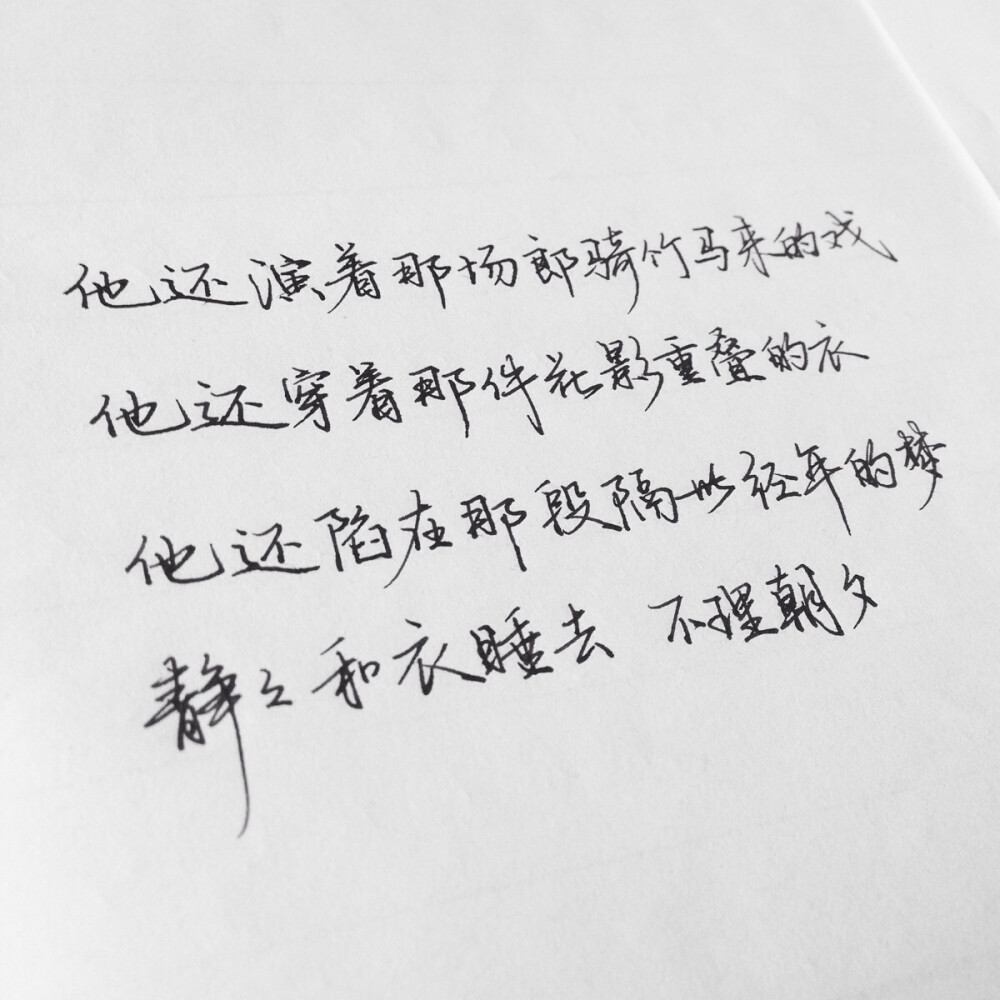 他还演着那场郎骑竹马来的戏
他还穿着那件花影重叠的衣
他还陷在那段隔世经年的梦
静之和衣睡去 不理朝夕